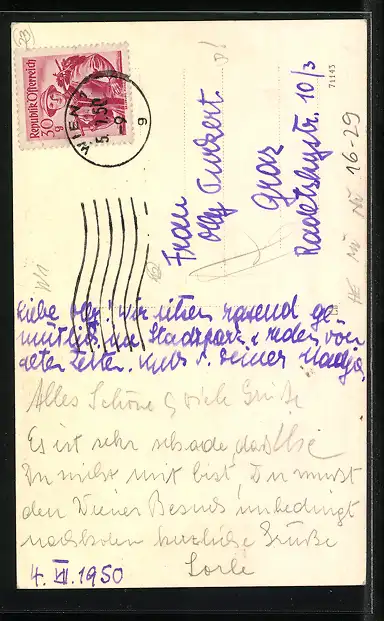 23
Republik Österreich
30
g
WIEN
5. 7. 50
9
g
Frau
Olly
Graz
Radetzkystr. 10/3
71143
16-29
Liebe Olly! Wir sitzen rasend ge-
mütlich im Stadtpark u. reden von
alten Zeiten. Kuss v. Deiner
Alles Schöne u. viele Grüße
Es ist sehr schade, daß
Du nicht mit bist, Du mußt
den Wiener Besuch unbedingt
nachholen herzliche Grüße
Lorle
4. VII. 1950